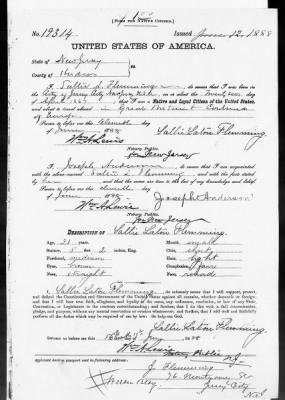 [FORM FOR NATIVE CITIZEN.]
No. 19314. Issued June 12, 1888
UNITED STATES OF AMERICA.
State of New Jersey
County of Hudson
I, Sallie L. Flemming, do swear that I was born in the
City of Jersey City, on or about the
day of
April 1867; that I am a Native and Loyal Citizen of the United States,
and about to travel abroad in Great Britain & Continent
of Europe
Sworn to before me this Eleventh day
of June 1888
Sallie Eaton Flemming
Wm A Lewis
for New Jersey
I, Joseph Anderson, do swear that I am acquainted
with the above-named Sallie L. Flemming, and with the facts stated
by her, and that the same are true to the best of my knowledge and belief.
Sworn to before me this eleventh day
of June 1888
Joseph Anderson
Wm A Lewis
for New Jersey
DESCRIPTION OF Sallie Eaton Flemming.
Age: 21 years. Mouth: small
Stature: 5 feet 2 inches, Eng. Chin: short
Forehead: medium Hair: light
Eyes: brown Complexion: fair
Nose: straight Face: round
I, Sallie Eaton Flemming, do solemnly swear that I will support, protect,
and defend the Constitution and Government of the United States against all enemies, whether domestic or foreign;
and that I will bear true faith, allegiance, and loyalty to the same, any ordinance, resolution, or law of any State,
Convention, or Legislature to the contrary notwithstanding; and further, that I do this with a full determination,
pledge, and purpose, without any mental reservation or evasion whatsoever; and further, that I will well and faithfully
perform all the duties which may be required of me by law: So help me God.
Sallie Eaton Flemming
Sworn to before me this day of 1888
Wm A Lewis
Notary Public N.J.
Applicant desires passport sent to following address:
J. Flemming
76 Montgomery St
Jersey City
N.J.